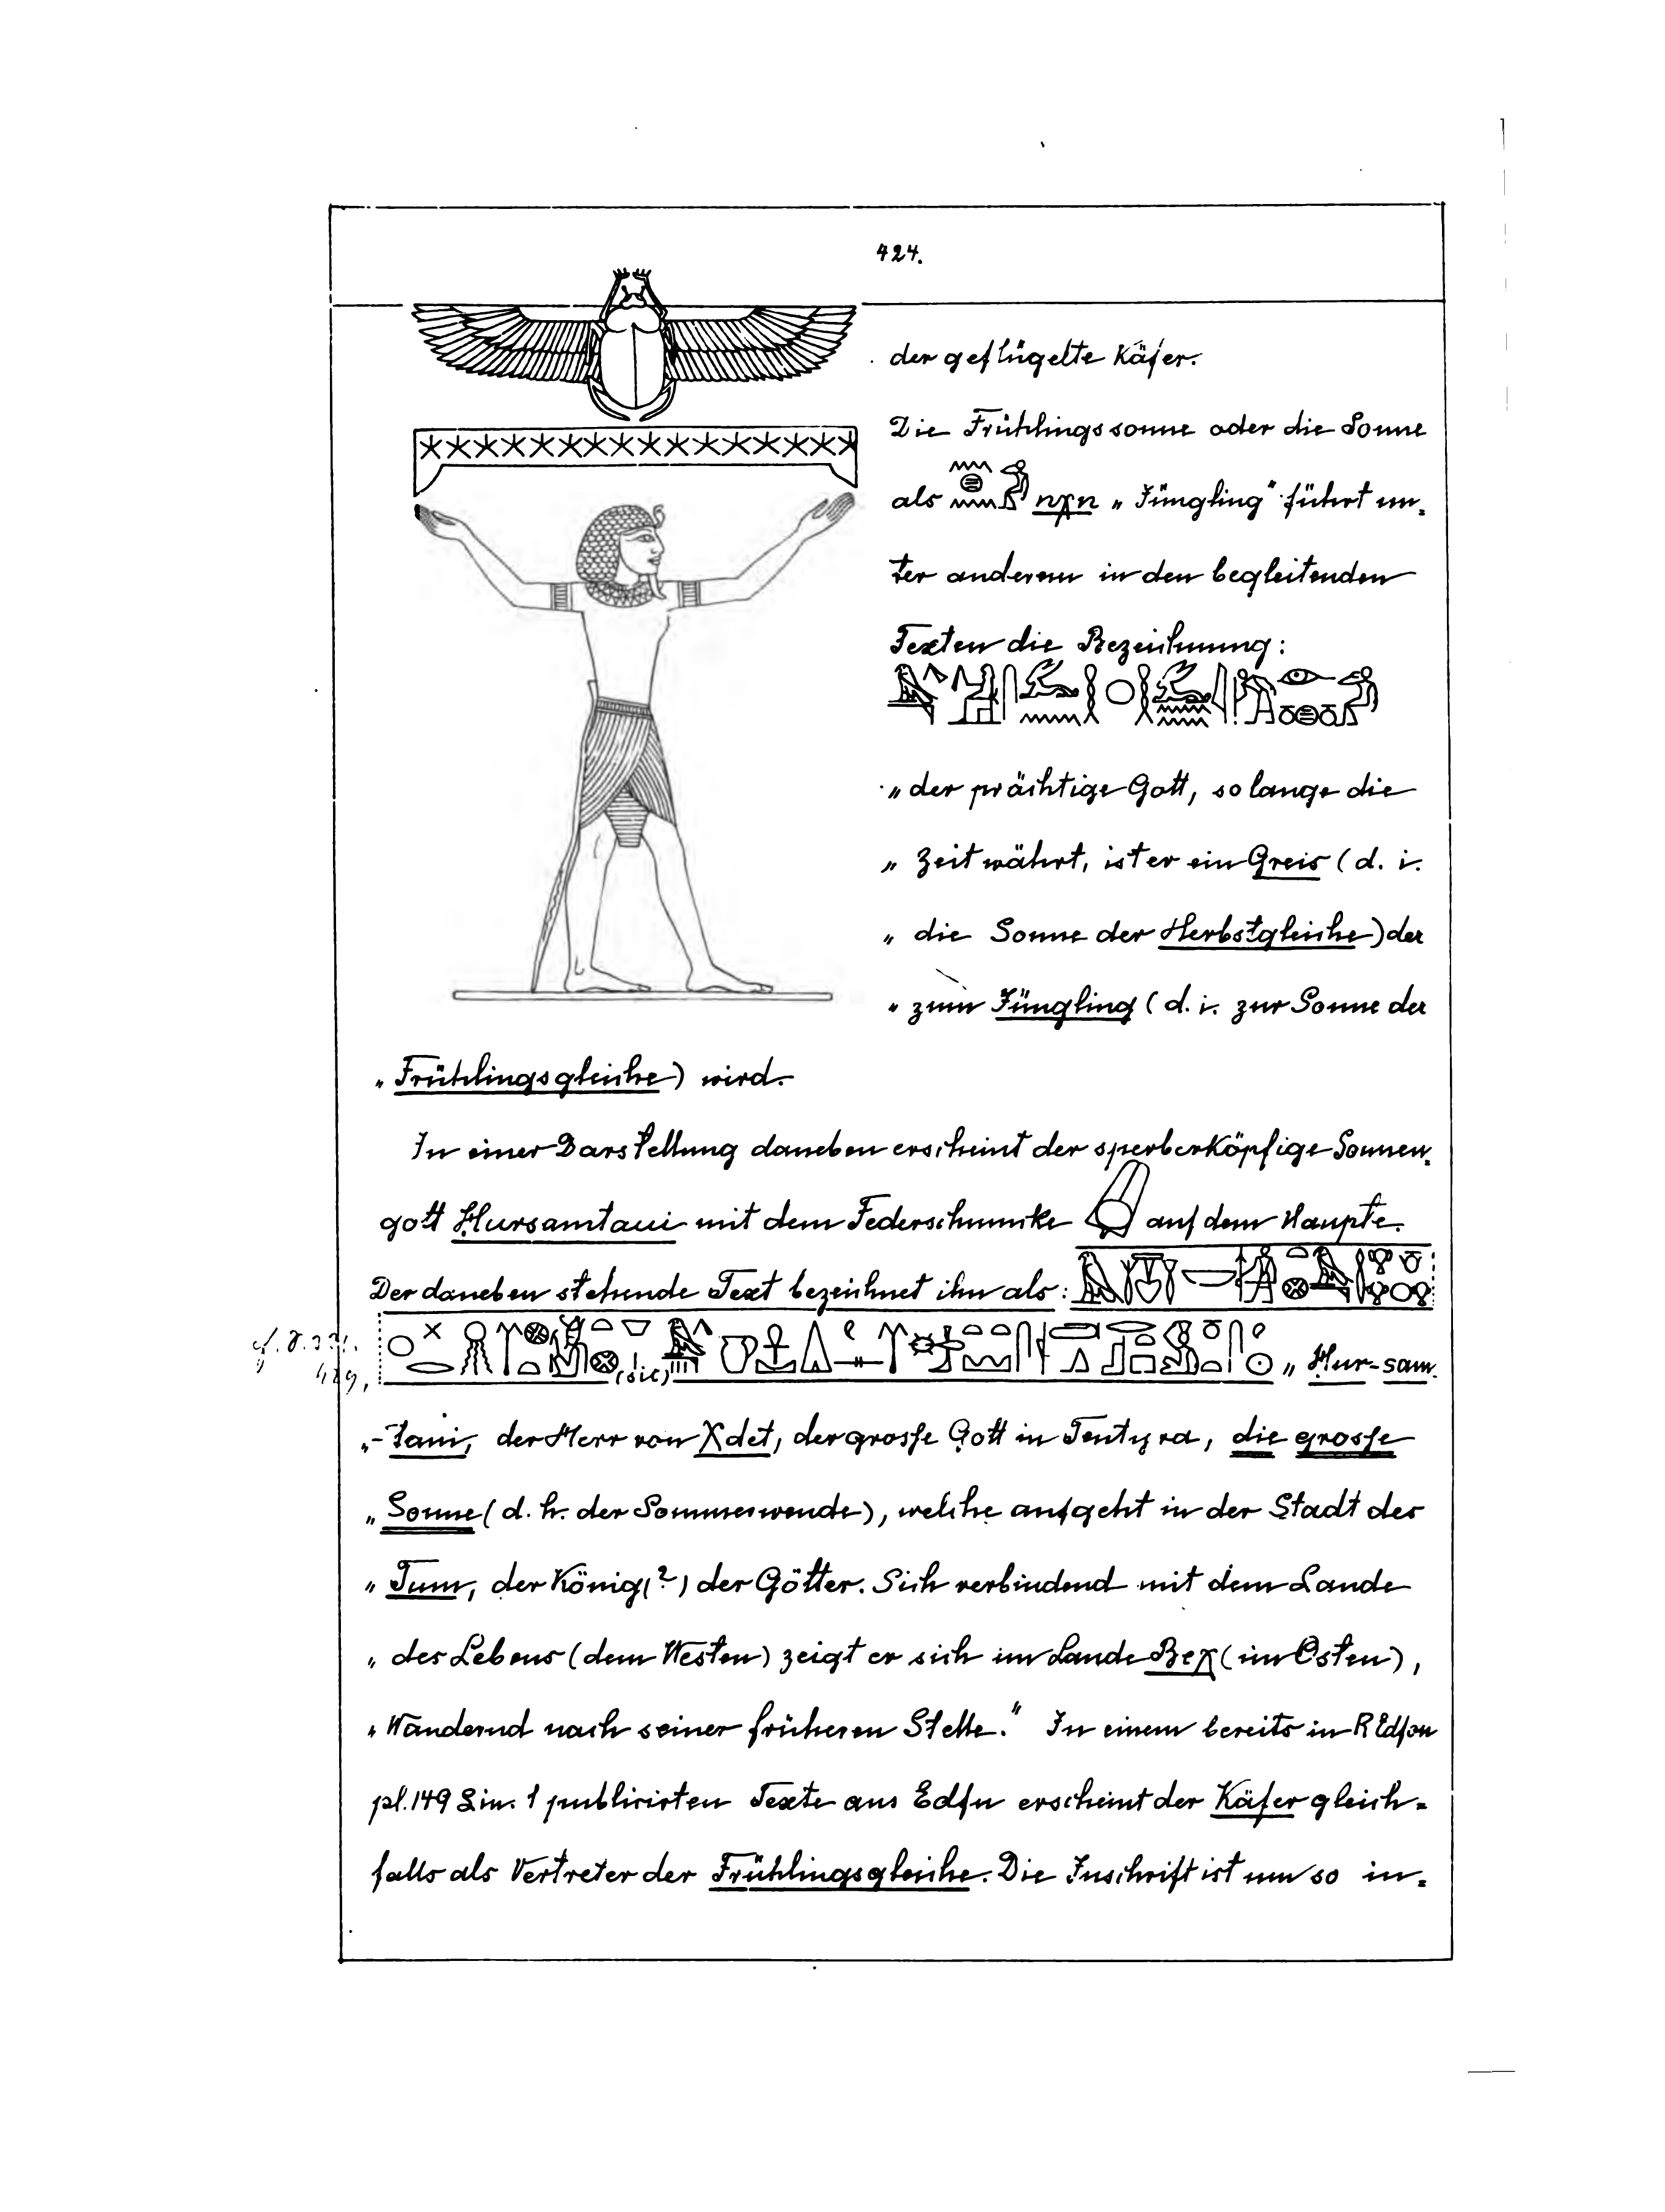 424.
der geflügelte Käfer.
Die Frühlingssonne oder die Sonne
als nχn „Jüngling" führt un-
ter anderem in den begleitenden
Texten die Bezeichnung:
„der prächtige Gott, so lange die
„Zeit währt, ist er ein Greis (d. i.
„die Sonne der Herbstgleiche) der
„zum Jüngling (d. i. zur Sonne der
„Frühlingsgleiche) wird.
In einer Darstellung daneben erscheint der sperberköpfige Sonnen-
gott Hursamtaui mit dem Federschmucke auf dem Haupte.
Der daneben stehende Text bezeichnet ihn als:
(sic) „Hur-sam-
„-taui, der Herr von Χdet, der grosse Gott in Tentyra, die grosse
„Sonne (d. h. der Sommerwende), welche aufgeht in der Stadt des
„Tum, der König(?) der Götter. Sich verbindend mit dem Lande
„des Lebens (dem Westen) zeigt er sich im Lande Beχ (im Osten),
„Wandernd nach seiner früheren Stelle." In einem bereits in R Edfou
pl. 149 Lin. 1 publicirten Texte aus Edfu erscheint der Käfer gleich-
falls als Vertreter der Frühlingsgleiche. Die Inschrift ist um so in-